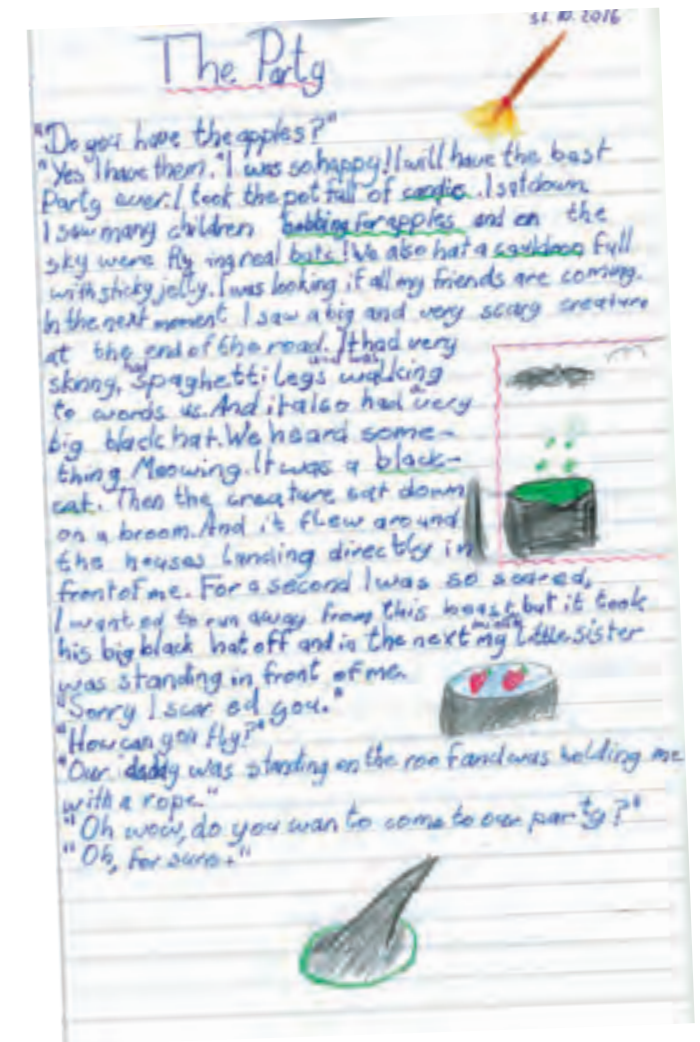 31.10.2016
The Party
"Do you have the apples?"
"Yes I have them." I was so happy! I will have the best
Party ever. I took the pot full of candie. I sat down
I saw many children bobbing for apples and on the
sky were fly ing real bats! We also hat a cauldron full
with sticky jelly. I was looking if all my friends are coming.
In the next moment I saw a big and very scary creature
at the end of the road. It had very
skinny, spaghetti legs and was walking
to words us. And it also had a very
big black hat. We heard some-
thing Meowing. It was a black-
cat. Then the creature sat down
on a broom. And it flew around
the houses landing directly in
front of me. For a second I was so scared,
I want ed to run away from this beast, but it took
his big black hat off and in the next my little sister
was standing in front of me.
"Sorry I scar ed you."
"How can you fly?"
"Our daddy was standing on the roof and was holding me
with a rope."
"Oh wow, do you wan to come to our party?"
"Oh, for sure."